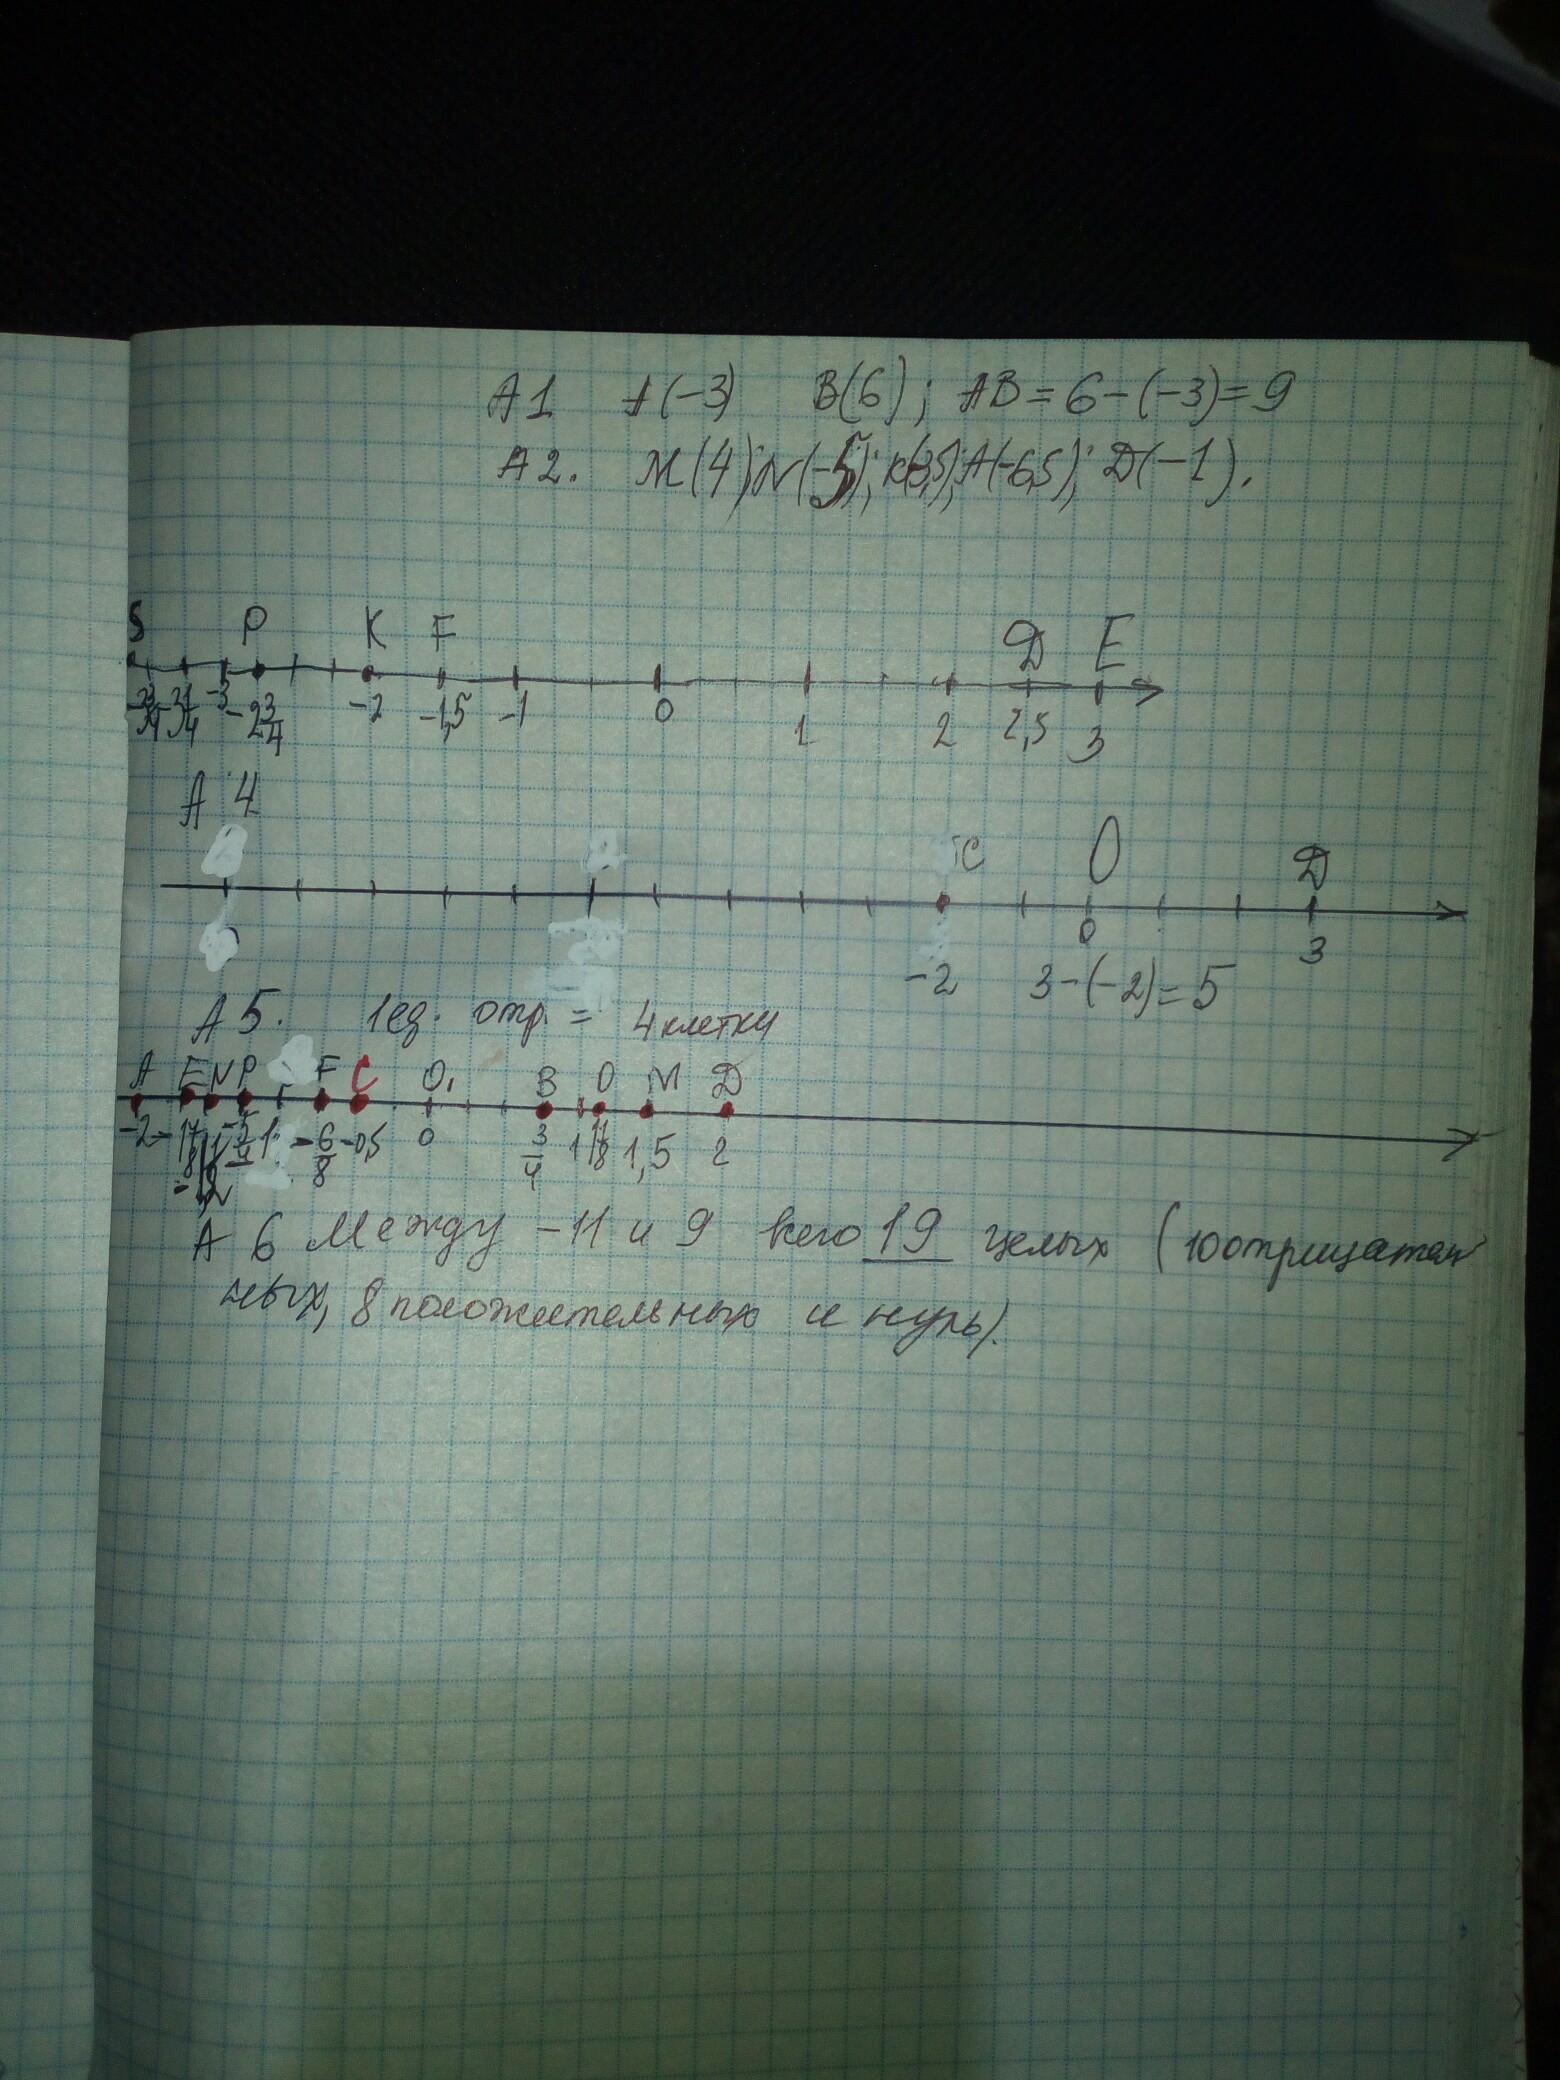 А1 А(-3) В(6); АВ=6-(-3)=9
А2. М(4); N(-5); К(3,5); А(-6,5); D(-1).
S P K F D E
-3 3/4 -3 1/4 -3 -2 3/4 -2 -1,5 -1 0 1 2 2,5 3
А 4
С O D
-2 0 3
3-(-2)=5
А 5. 1 ед. отр. = 4 клетки
A E N P F C O, B O M D
-2 -1 7/8 -1 1/2 -5/4 -1 -6/8 -0,5 0 3/4 1 11/8 1,5 2
А 6 Между -11 и 9 всего 19 целых (10 отрицатель
ных, 8 положительных и нуль).